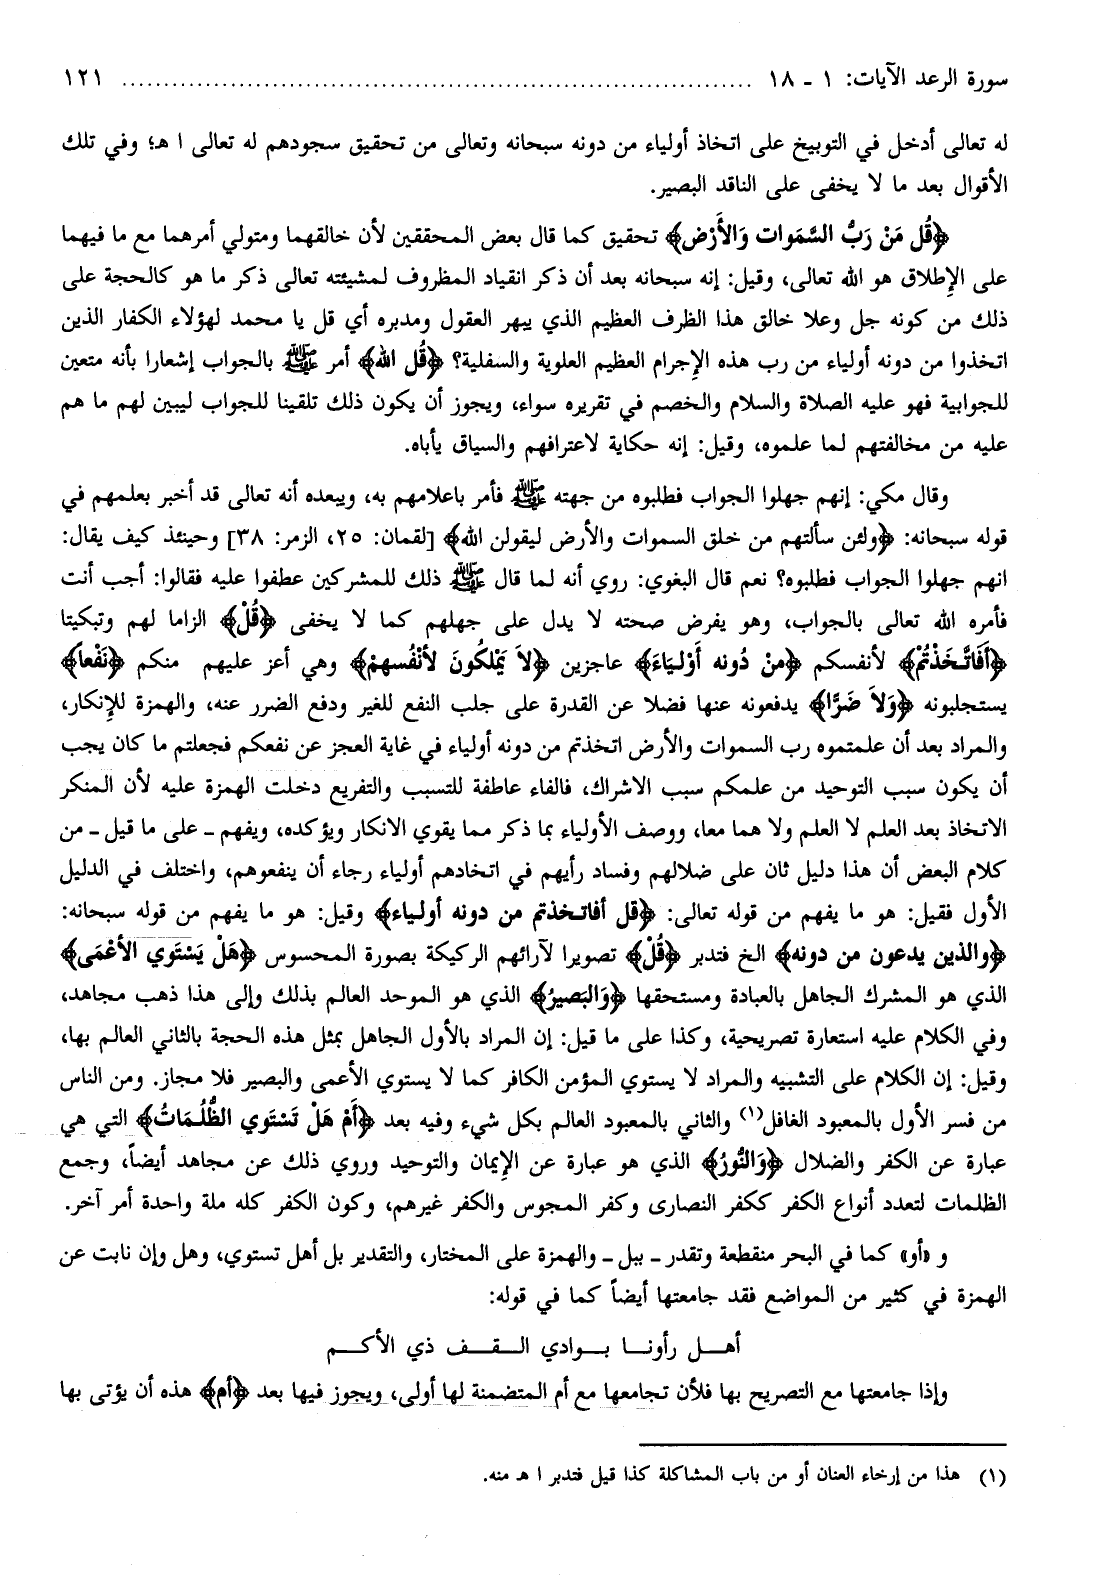 سورة الرعد الآيات: ١ ـ ١٨ ........................................................................ ١٢١
له تعالى أدخل في التوبيخ على اتخاذ أولياء من دونه سبحانه وتعالى من تحقيق سجودهم له تعالى ا هـ؛ وفي تلك
الأقوال بعد ما لا يخفى على الناقد البصير.
﴿قُل مَنْ رَبُّ السَّمَوات وَالأَرْض﴾ تحقيق كما قال بعض المحققين لأن خالقهما ومتولي أمرهما مع ما فيهما
على الإِطلاق هو الله تعالى، وقيل: إنه سبحانه بعد أن ذكر انقياد المظروف لمشيئته تعالى ذكر ما هو كالحجة على
ذلك من كونه جل وعلا خالق هذا الظرف العظيم الذي يبهر العقول ومدبره أي قل يا محمد لهؤلاء الكفار الذين
اتخذوا من دونه أولياء من رب هذه الإِجرام العظيم العلوية والسفلية؟ ﴿قُل الله﴾ أمر ﷺ بالجواب إشعارا بأنه متعين
للجوابية فهو عليه الصلاة والسلام والخصم في تقريره سواء، ويجوز أن يكون ذلك تلقينا للجواب ليبين لهم ما هم
عليه من مخالفتهم لما علموه، وقيل: إنه حكاية لاعترافهم والسياق يأباه.
وقال مكي: إنهم جهلوا الجواب فطلبوه من جهته ﷺ فأمر باعلامهم به، ويبعده أنه تعالى قد أخبر بعلمهم في
قوله سبحانه: ﴿ولئن سألتهم من خلق السموات والأرض ليقولن الله﴾ [لقمان: ٢٥، الزمر: ٣٨] وحينئذ كيف يقال:
انهم جهلوا الجواب فطلبوه؟ نعم قال البغوي: روي أنه لما قال ﷺ ذلك للمشركين عطفوا عليه فقالوا: أجب أنت
فأمره الله تعالى بالجواب، وهو يفرض صحته لا يدل على جهلهم كما لا يخفى ﴿قُلْ﴾ الزاما لهم وتبكيتا
﴿أَفَاتَّخَذْتُمْ﴾ لأنفسكم ﴿مِنْ دُونه أَوْليَاءَ﴾ عاجزين ﴿لاَ يَمْلكُونَ لأنْفُسهمْ﴾ وهي أعز عليهم منكم ﴿نَفْعاً﴾
يستجلبونه ﴿وَلاَ ضَرًّا﴾ يدفعونه عنها فضلا عن القدرة على جلب النفع للغير ودفع الضرر عنه، والهمزة للإنكار،
والمراد بعد أن علمتموه رب السموات والأرض اتخذتم من دونه أولياء في غاية العجز عن نفعكم فجعلتم ما كان يجب
أن يكون سبب التوحيد من علمكم سبب الاشراك، فالفاء عاطفة للتسبب والتفريع دخلت الهمزة عليه لأن المنكر
الاتخاذ بعد العلم لا العلم ولا هما معا، ووصف الأولياء بما ذكر مما يقوي الانكار ويؤكده، ويفهم ـ على ما قيل ـ من
كلام البعض أن هذا دليل ثان على ضلالهم وفساد رأيهم في اتخادهم أولياء رجاء أن ينفعوهم، واختلف في الدليل
الأول فقيل: هو ما يفهم من قوله تعالى: ﴿قل أفاتخذتم من دونه أولياء﴾ وقيل: هو ما يفهم من قوله سبحانه:
﴿والذين يدعون من دونه﴾ الخ فتدبر ﴿قُلْ﴾ تصويرا لآرائهم الركيكة بصورة المحسوس ﴿هَلْ يَسْتَوي الأعْمَى﴾
الذي هو المشرك الجاهل بالعبادة ومستحقها ﴿وَالبَصيرُ﴾ الذي هو الموحد العالم بذلك وإلى هذا ذهب مجاهد،
وفي الكلام عليه استعارة تصريحية، وكذا على ما قيل: إن المراد بالأول الجاهل بمثل هذه الحجة بالثاني العالم بها،
وقيل: إن الكلام على التشبيه والمراد لا يستوي المؤمن الكافر كما لا يستوي الأعمى والبصير فلا مجاز. ومن الناس
من فسر الأول بالمعبود الغافل(١) والثاني بالمعبود العالم بكل شيء وفيه بعد ﴿أَمْ هَلْ تَسْتَوي الظُّلُمَاتُ﴾ التي هي
عبارة عن الكفر والضلال ﴿وَالنُّورُ﴾ الذي هو عبارة عن الإِيمان والتوحيد وروي ذلك عن مجاهد أيضاً، وجمع
الظلمات لتعدد أنواع الكفر ككفر النصارى وكفر المجوس والكفر غيرهم، وكون الكفر كله ملة واحدة أمر آخر.
و «أو» كما في البحر منقطعة وتقدر ـ ببل ـ والهمزة على المختار، والتقدير بل أهل تستوي، وهل وإن نابت عن
الهمزة في كثير من المواضع فقد جامعتها أيضاً كما في قوله:
أهـل رأونـا بـوادي الـقـف ذي الأكـم
وإذا جامعتها مع التصريح بها فلأن تجامعها مع أم المتضمنة لها أولى، ويجوز فيها بعد ﴿أم﴾ هذه أن يؤتى بها
(١) هذا من إرخاء العنان أو من باب المشاكلة كذا قيل فتدبر ا هـ منه.